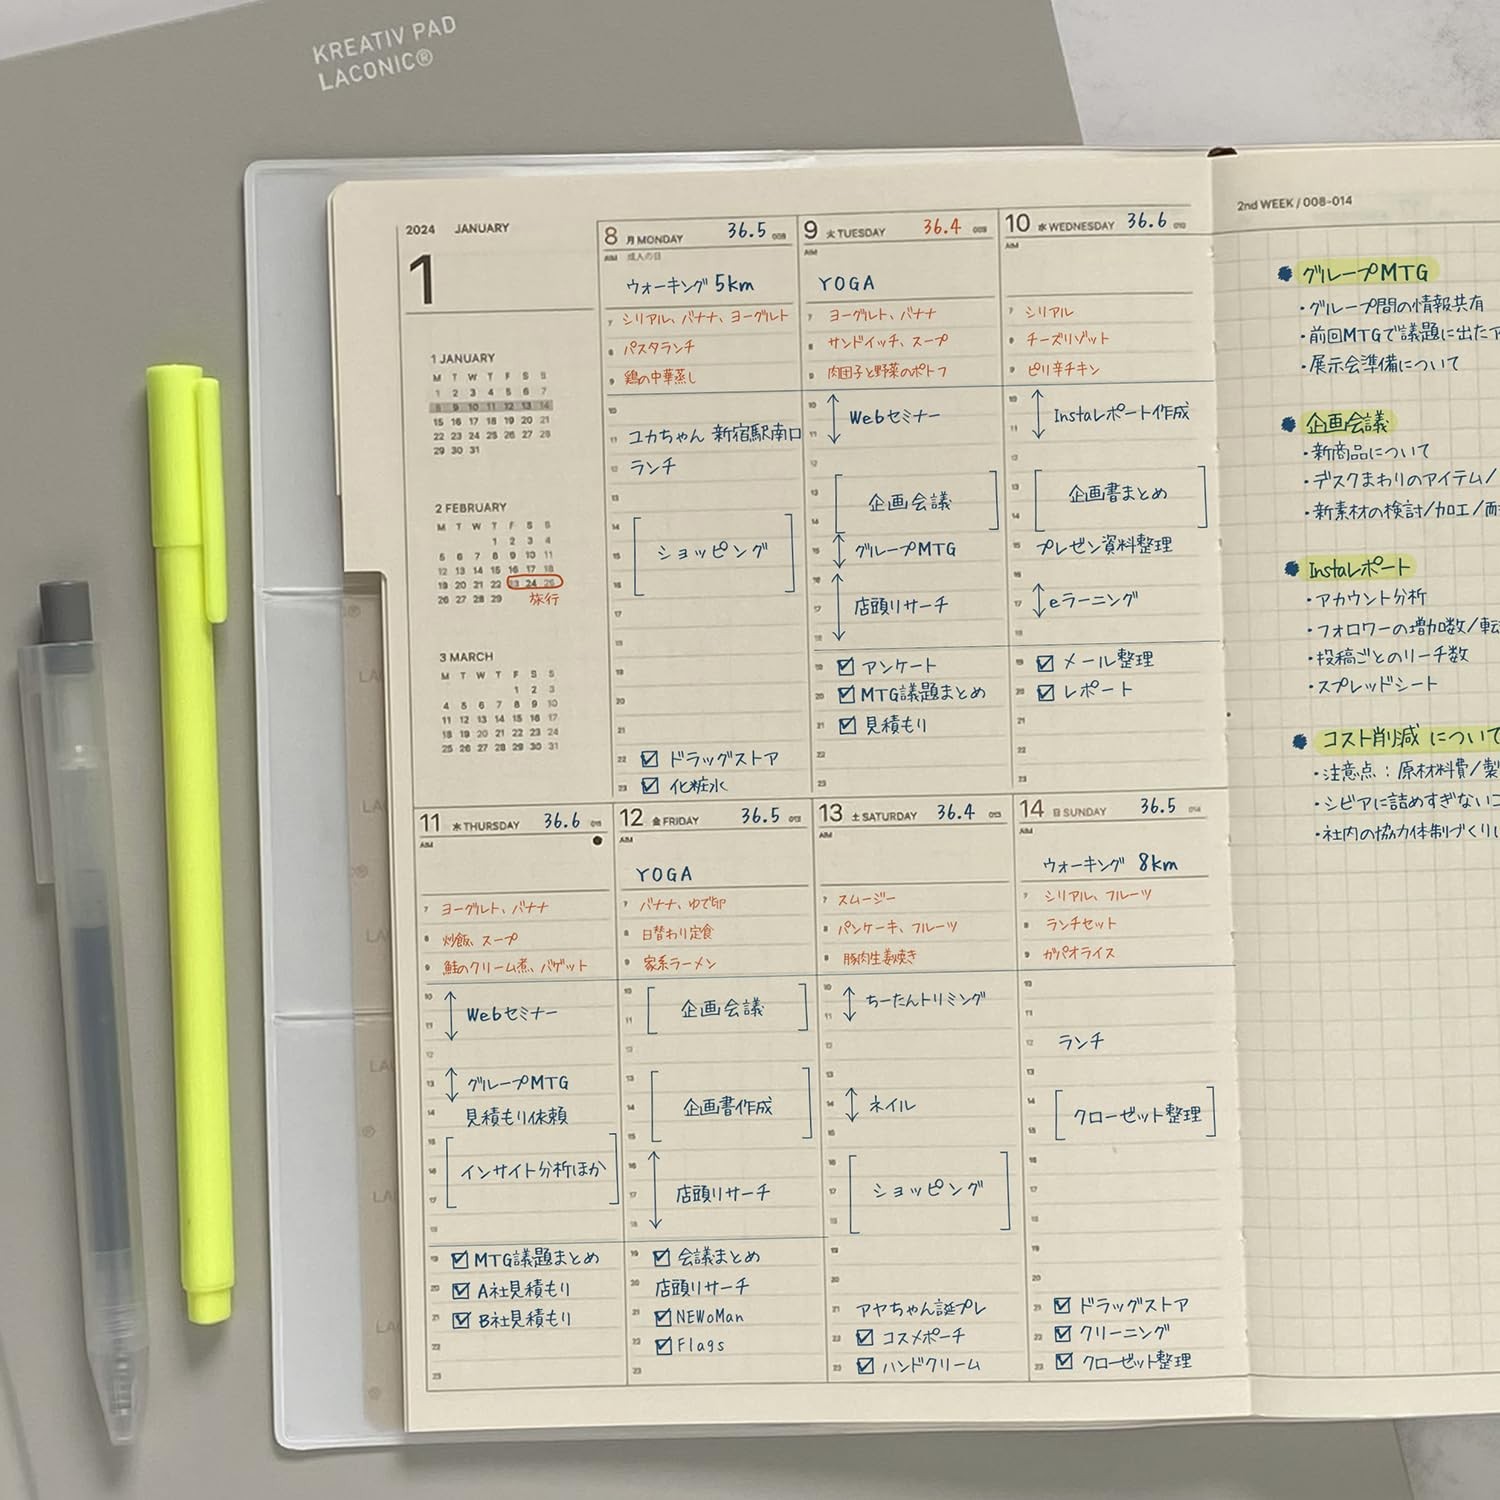 KREATIV PAD
LACONIC®
2024 JANUARY
1
1 JANUARY
M T W T F S S
1 2 3 4 5 6 7
8 9 10 11 12 13 14
15 16 17 18 19 20 21
22 23 24 25 26 27 28
29 30 31
2 FEBRUARY
M T W T F S S
1 2 3 4
5 6 7 8 9 10 11
12 13 14 15 16 17 18
19 20 21 22 23 24 25
26 27 28 29
旅行
3 MARCH
M T W T F S S
1 2 3
4 5 6 7 8 9 10
11 12 13 14 15 16 17
18 19 20 21 22 23 24
25 26 27 28 29 30 31
8 月 MONDAY 36.5 008
AIM 成人の日
ウォーキング 5km
7 シリアル、バナナ、ヨーグルト
8 パスタランチ
9 鶏の中華蒸し
10
11 ユカちゃん 新宿駅南口
12 ランチ
13
14
15 ショッピング
16
17
18
19
20
21
22 ドラッグストア
23 化粧水
9 火 TUESDAY 36.4 009
AIM
YOGA
7 ヨーグルト、バナナ
8 サンドイッチ、スープ
9 肉団子と野菜のポトフ
10 Webセミナー
11
12
13 企画会議
14
15 グループMTG
16
17 店頭リサーチ
18
19 アンケート
20 MTG議題まとめ
21 見積もり
22
23
10 水 WEDNESDAY 36.6 010
AIM
7 シリアル
8 チーズリゾット
9 ピリ辛チキン
10 Instaレポート作成
11
12
13 企画書まとめ
14
15 プレゼン資料整理
16
17 eラーニング
18
19 メール整理
20 レポート
21
22
23
11 木 THURSDAY 36.6 011
AIM
7 ヨーグルト、バナナ
8 炒飯、スープ
9 鮭のクリーム煮、バゲット
10 Webセミナー
11
12
13 グループMTG
14 見積もり依頼
15
16 インサイト分析ほか
17
18
19 MTG議題まとめ
20 A社見積もり
21 B社見積もり
22
23
12 金 FRIDAY 36.5 012
AIM
YOGA
7 バナナ、ゆで卵
8 日替わり定食
9 家系ラーメン
10 企画会議
11
12
13
14 企画書作成
15
16
17 店頭リサーチ
18
19 会議まとめ
20 店頭リサーチ
21 NEWoMan
22 Flags
23
13 土 SATURDAY 36.4 013
AIM
7 スムージー
8 パンケーキ、フルーツ
9 豚肉生姜焼き
10 ちーたんトリミング
11
12
13
14 ネイル
15
16
17 ショッピング
18
19
20
21 アヤちゃん誕プレ
22 コスメポーチ
23 ハンドクリーム
14 日 SUNDAY 36.5 014
AIM
ウォーキング 8km
7 シリアル、フルーツ
8 ランチセット
9 ガパオライス
10
11
12 ランチ
13
14 クローゼット整理
15
16
17
18
19
20
21 ドラッグストア
22 クリーニング
23 クローゼット整理
2nd WEEK / 008-014
グループMTG
・グループ間の情報共有
・前回MTGで議題に出たア
・展示会準備について
企画会議
・新商品について
・デスクまわりのアイテム/
・新素材の検討/加工/
Instaレポート
・アカウント分析
・フォロワーの増加数/転
・投稿ごとのリーチ数
・スプレッドシート
コスト削減 について
・注意点:原材料費/製
・シビアに詰めすぎないコ
・社内の協力体制づくり